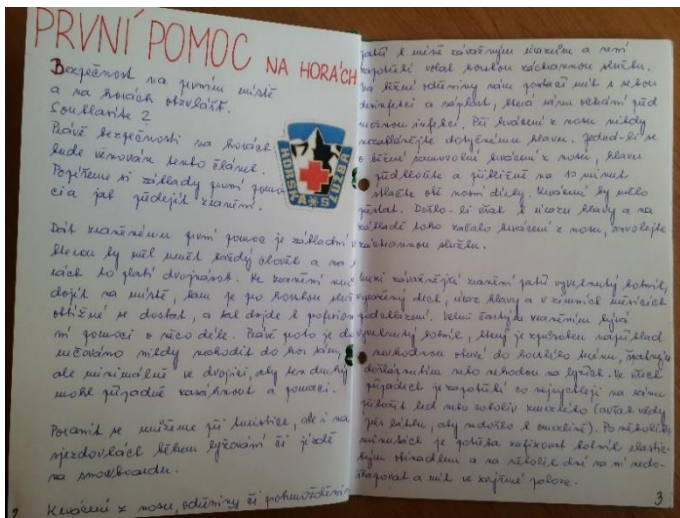 PRVNÍ POMOC NA HORÁCH
Bezpečnost na prvním místě
a na horách obzvlášť.
Souhlasíte?
Právě bezpečnosti na horách
bude věnován tento článek.
Popíšeme si základy první pomo
ci a jak předejít zranění.
HORSKÁ SLUŽBA
Dát zraněnému první pomoc je základní
kterou by měl umět každý člověk a na
rách to platí dvojnásob. Ke zranění
dojít na místě, kam je pro horskou
obtížné se dostat, a tak dojde k
ní pomoci o něco déle. Právě proto je
učováno nikdy nechodit do hor sám,
ale minimálně ve dvojici, aby ten druhý
mohl případně zasáhnout a pomoci.
Poranit se můžeme při turistice, ale i na
sjezdovkách během lyžování či jízdě
na snowboardu.
Krvácení z nosu, odřeniny či pohmoždění
2
patří k méně závažným úrazům a není
zapotřebí volat horskou záchrannou službu.
Na běžné odřeniny nám postačí mít s sebou
desinfekci a náplast, která ránu ochrání před
možnou infekcí. Při krvácení z nosu nikdy
nezaklánějte dotyčnému hlavu. Jedná-li se
o běžné samovolné krvácení z nosu, hlavu
předkloňte a přibližně na 10 minut
stlačte obě nosní dírky. Krvácení by mělo
přestat. Došlo-li však k úrazu hlavy a na
základě toho začalo krvácení z nosu, zavolejte
záchrannou službu.
Mezi závažnější zranění patří vyvrknutý kotník,
vyražený dech, úraz hlavy a v zimních měsících
podchlazení. Velmi častým zraněním bývá
vyvrknutý kotník, který je způsoben například
nevhodnou obuví do horského terénu, špatným
došlápnutím nebo nehodou na lyžích. Ve všech
případech je zapotřebí co nejrychleji na ránu
přiložit led nebo cokoliv zmrzlého (avšak vždy
přes látku, aby nedošlo k omrzlině). Po několika
minutách je potřeba zafixovat kotník elastic-
kým obinadlem a na několik dní na ni nedo-
šlapovat a mít ve zvýšené poloze.
3